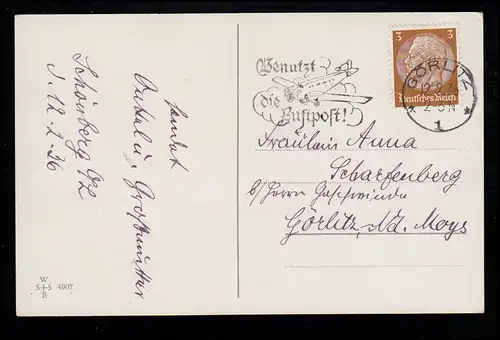 sendet
Onkel u. Großmutter.
Schönberg O/L
d. 12. 2. 36
W
S+S 4907
B
Benutzt
die
Luftpost!
3 3
Deutsches Reich
GÖRLITZ
1
Fräulein Anna
Scharfenberg
b/ Herrn Geschwinde
Görlitz, Nd. Moys